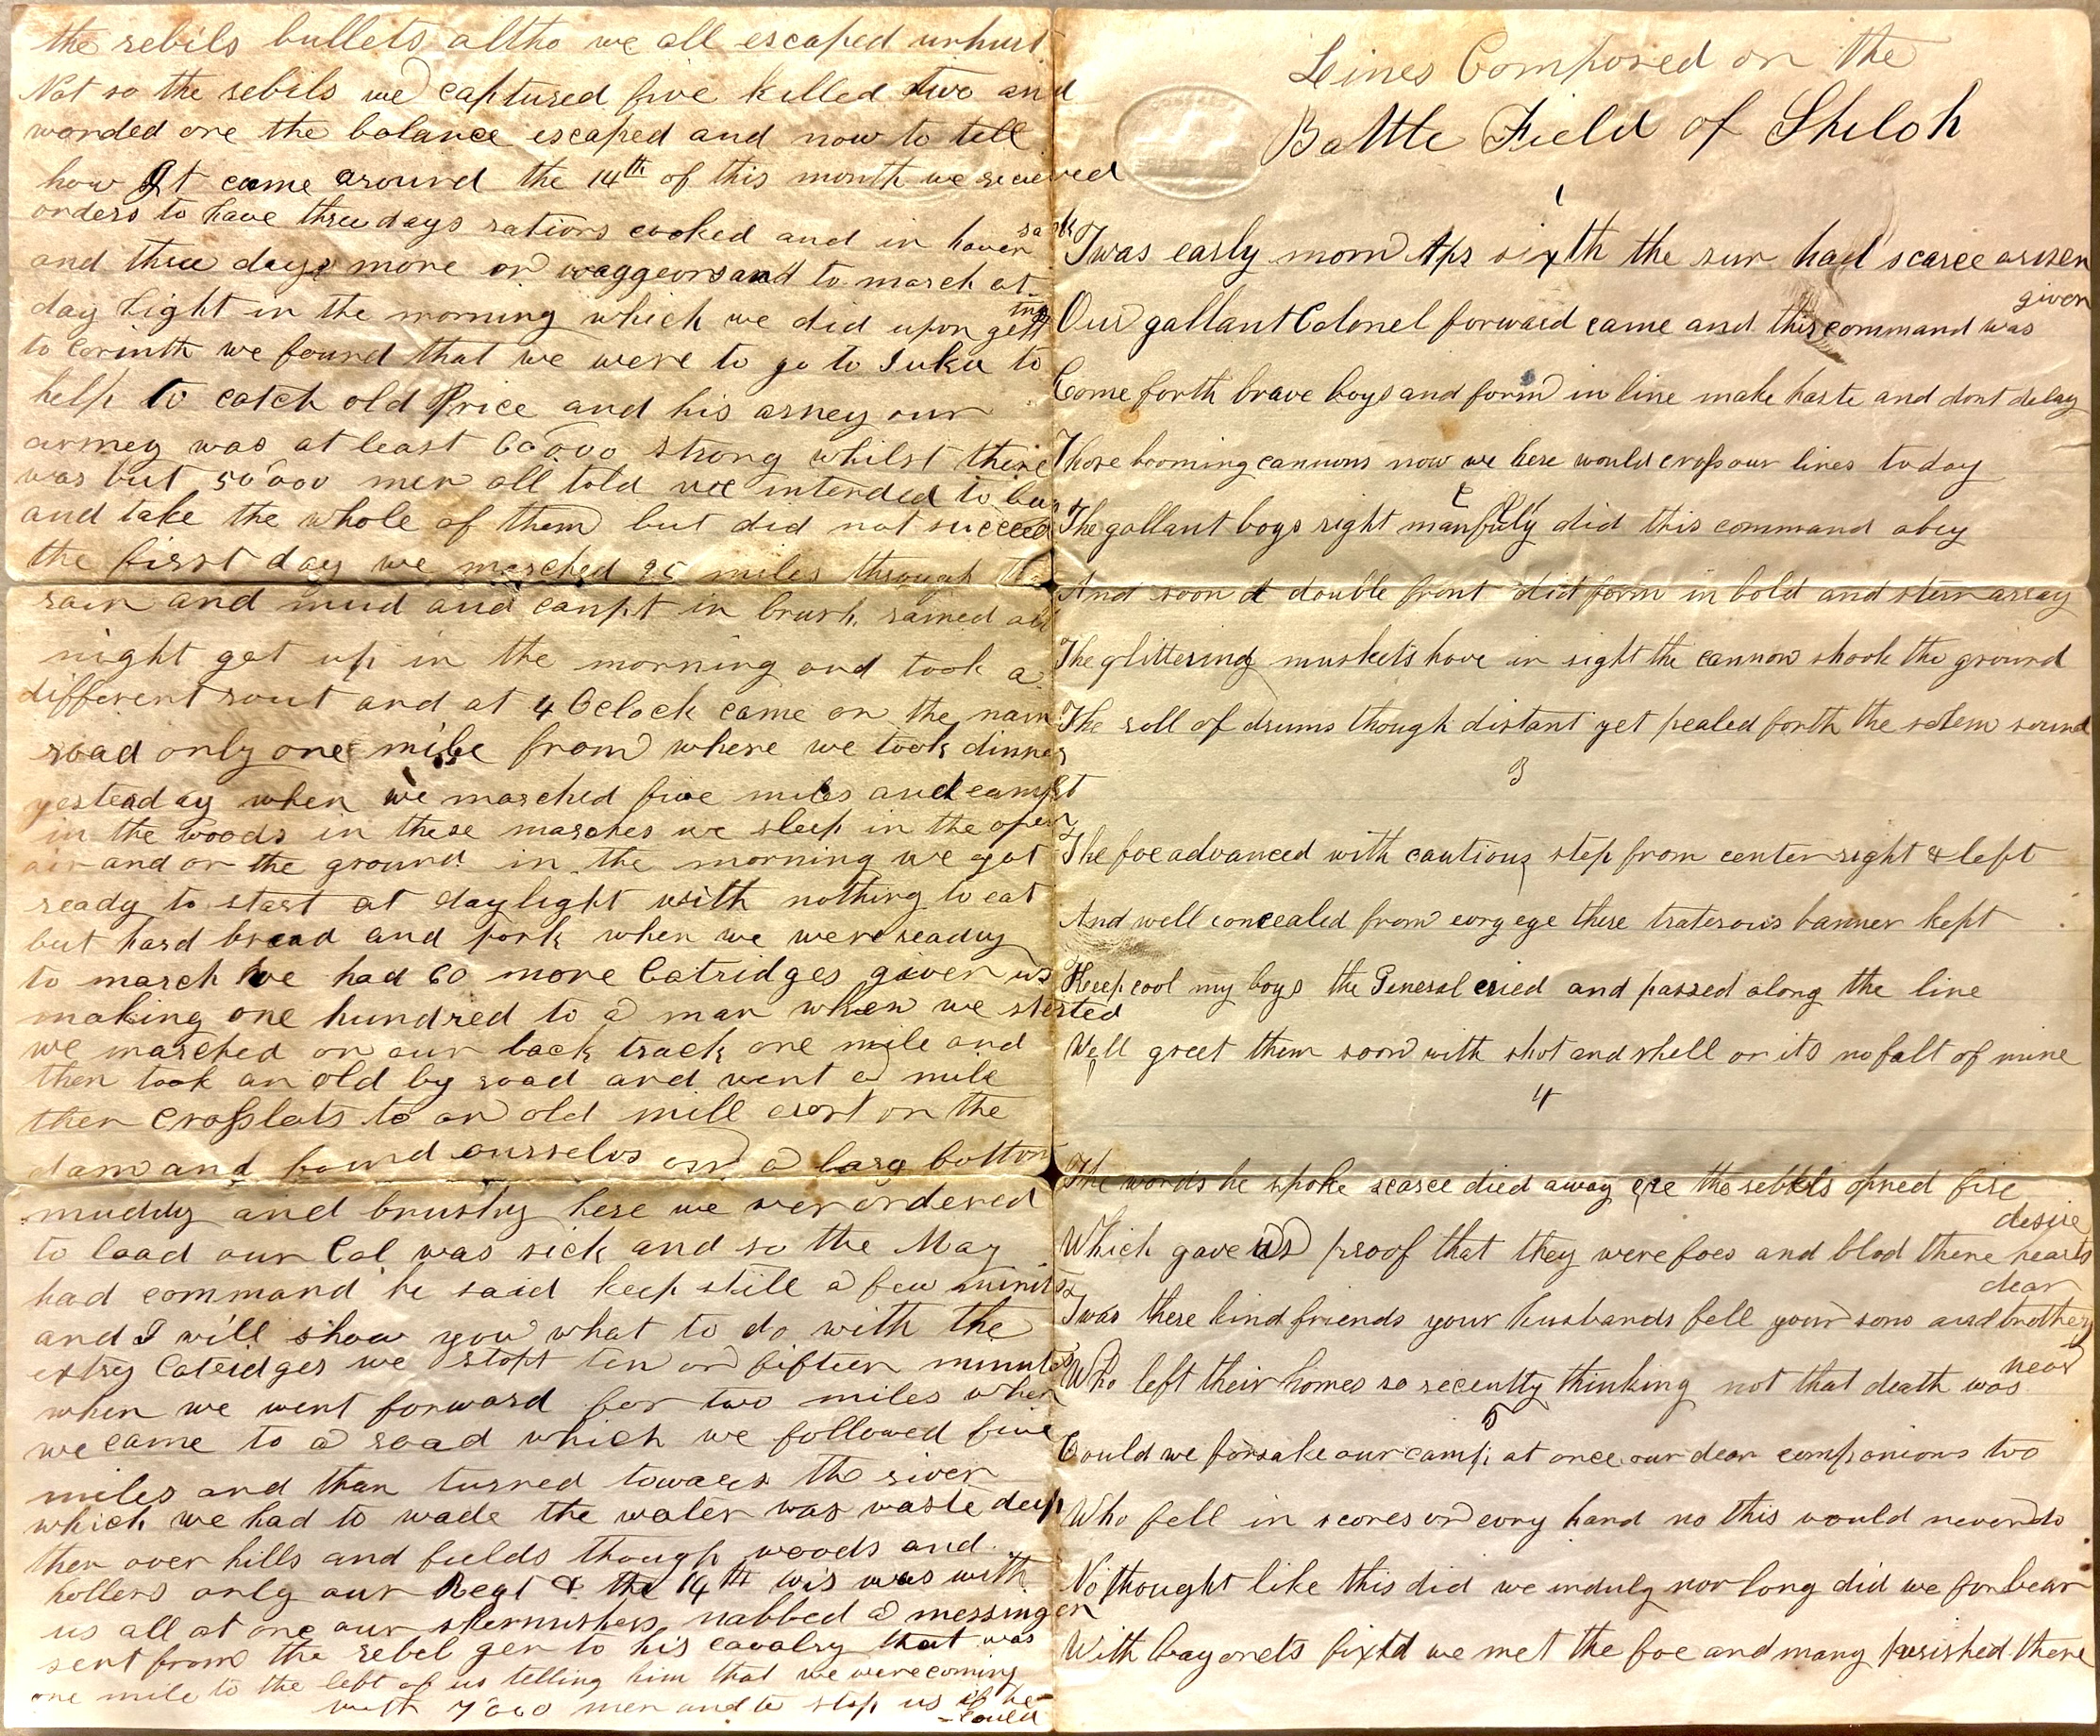 the rebils bullets altho we all escaped unhurt
Not so the rebils we captured five killed two and
wonded one the balance escaped and now to tell
how It came around the 14th of this month we recieved
orders to have three days rations cooked and in haversack
and three days more on waggeons and to march at
day Light in the morning which we did upon getting
to Corinth we found that we were to go to Iuka to
help to catch old Price and his armey our
armey was at least 60000 strong whilst there
was but 50000 men all told we intended to bag
and take the whole of them but did not succeed
the first day we marched 25 miles through the
rain and mud and campt in brush rained all
night got up in the morning and took a
different rout and at 4 OClock came on the main
road only one mile from where we took dinner
yesteaday when we marched five miles and campt
in the woods in these marches we sleep in the open
air and on the ground in the morning we got
ready to start at daylight with nothing to eat
but hard bread and pork when we were ready
to march we had 60 more Catridges given us
making one hundred to a man when we sterted
we marched on our back track one mile and
then took an old by road and went a mile
then Crosslots to an old mill crost on the
dam and found ourselvs on a larg bottom
muddy and brushy here we wer ordered
to load our Col was sick and so the May
had command he said keep still a few minits
and I will show you what to do with the
extry Catridges we stopt ten or fifteen minutes
when we went forward for two miles when
we came to a road which we followed five
miles and than turned towards the river
which we had to wade the water was waste deep
then over hills and fields though woods and
hollers only our Regt & the 14th wis was with
us all at one our skermishers nabbed a messinger
sent from the rebel gen to his cavalry that was
one mile to the left of us telling him that we were coming
with 7000 men and to stop us if he could
Lines Composed on the
Battle Field of Shiloh
1
Twas early morn Apr sixth the sun had scarce arisen
Our gallant Colonel forward came and this command was given
Come forth brave boys and form in line make haste and dont delay
Those booming cannons now we here would cross our lines today
2
The gallant boys right manfully did this command obey
And soon a double front did form in bold and stern array
The glittering muskets hove in sight the cannon shook the ground
The roll of drums though distant yet pealed forth the solem sound
3
The foe advanced with cautious step from center right & left
And well concealed from evry eye there traterous banner kept
Keep cool my boys the General cried and passed along the line
Well greet them soon with shot and shell or its no falt of mine
4
The words he spoke scarce died away ere the rebbels opned fire
Which gave us proof that they were foes and blod there hearts desire
Twas there kind friends your husbands fell your sons and brothers dear
Who left their homes so recently thinking not that death was near
5
Could we forsake our camp at once our dear companions two
Who fell in scores on evry hand no this would never do
No thought like this did we indulg nor long did we forbear
With bayonets fixtd we met the foe and many perished there